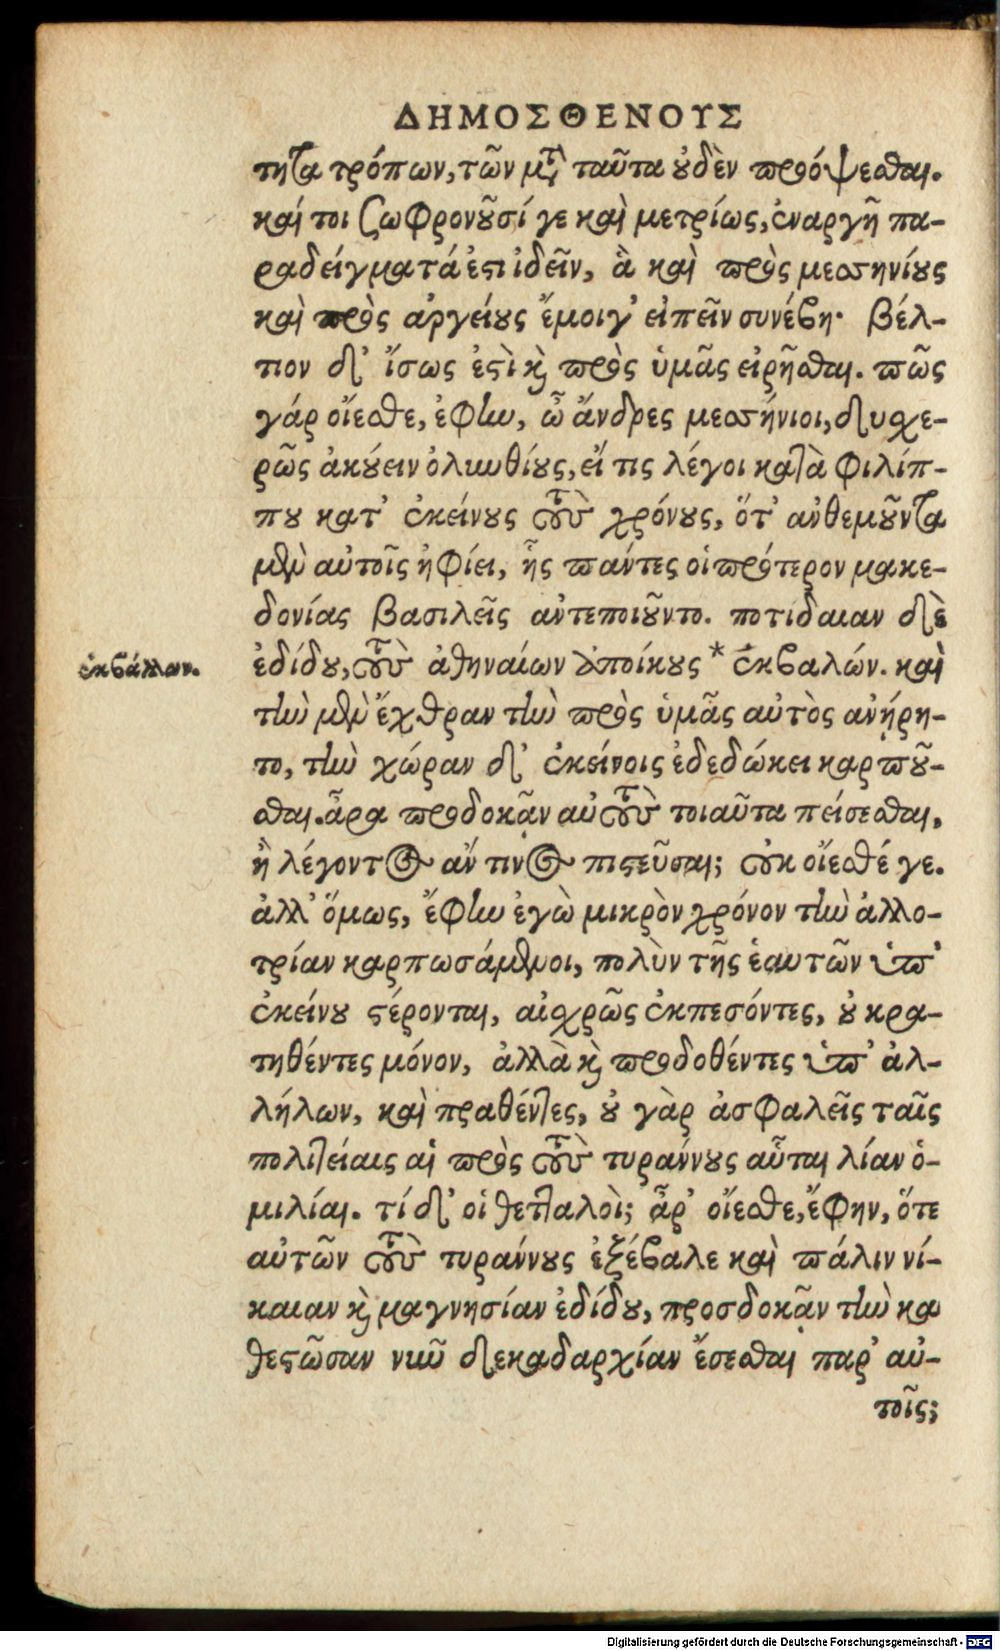 ΔΗΜΟΣΘΕΝΟΥΣ
τητα τρόπων, τῶν μετὰ ταῦτα οὐδὲν προόψεσθαι.
καί τοι σωφρονοῦσί γε καὶ μετρίως, ἐναργῆ πα-
ραδείγματά ἐστι ἰδεῖν, ἃ καὶ πρὸς μεσσηνίους
καὶ πρὸς ἀργείους ἔμοιγ' εἰπεῖν συνέβη· βέλ-
τιον δ' ἴσως ἐστὶ καὶ πρὸς ὑμᾶς εἰρῆσθαι. πῶς
γάρ οἴεσθε, ἐφην, ὦ ἄνδρες μεσσήνιοι, δυχε-
ρῶς ἀκούειν ὀλυνθίους, εἴ τις λέγοι κατὰ φιλίπ-
που κατ' ἐκείνους τοὺς χρόνους, ὅτ' ἀνθεμοῦντα
μὲν αὐτοῖς ἠφίει, ἧς πάντες οἱ πρότερον μακε-
δονίας βασιλεῖς ἀντεποιοῦντο. ποτίδαιαν δὲ
ἐδίδου, τοὺς ἀθηναίων ἀποίκους * ἐκβαλών. καὶ
ἐκβάλλων.
τὴν μὲν ἔχθραν τὴν πρὸς ὑμᾶς αὐτὸς ἀνῄρη-
το, τὴν χώραν δ' ἐκείνοις ἐδεδώκει καρποῦ-
σθαι. ἆρα προσδοκᾷν αὐτοὺς τοιαῦτα πείσεσθαι,
ἢ λέγοντος ἄν τινος πιστεῦσαι; οὐκ οἴεσθέ γε.
ἀλλ' ὅμως, ἔφην ἐγὼ μικρὸν χρόνον τὴν ἀλλο-
τρίαν καρπωσάμενοι, πολὺν τῆς ἑαυτῶν ὑπ'
ἐκείνου στέρονται, αἰσχρῶς ἐκπεσόντες, οὐ κρα-
τηθέντες μόνον, ἀλλὰ καὶ προδοθέντες ὑπ' ἀλ-
λήλων, καὶ πραθέντες, οὐ γὰρ ἀσφαλεῖς ταῖς
πολιτείαις αἱ πρὸς τοὺς τυράννους αὗται λίαν ὁ-
μιλίαι. τί δ' οἱ θετταλοὶ; ἆρ' οἴεσθε, ἔφην, ὅτε
αὐτῶν τοὺς τυράννους ἐξέβαλε καὶ πάλιν νί-
καιαν καὶ μαγνησίαν ἐδίδου, προσδοκᾷν τὴν κα
θεστῶσαν νῦν δεκαδαρχίαν ἔσεσθαι παρ' αὐ-
τοῖς;
Digitalisierung gefördert durch die Deutsche Forschungsgemeinschaft - DFG